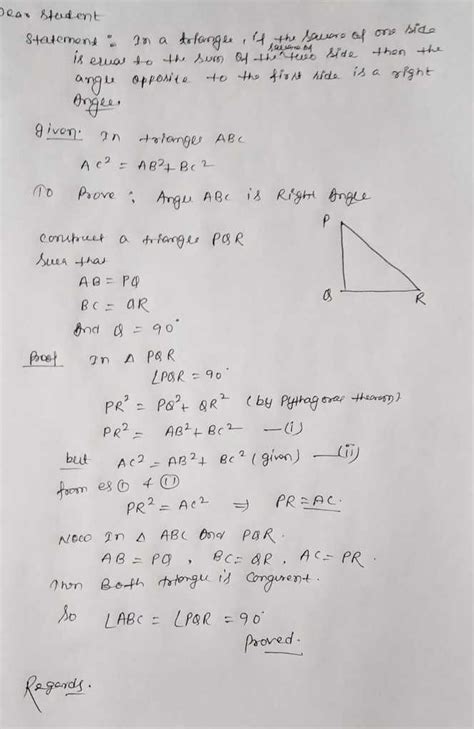 Dear Student
Statement : In a triangle, if the square of one side
is equal to the sum of the square of two side then the
angle opposite to the first side is a right
Angle.
given: In triangle ABC
AC² = AB² + BC²
To Prove : Angle ABC is Right Angle
construct a triangle PQR
Such that
AB = PQ
BC = QR
And Q = 90°
P
Q
R
Proof In Δ PQR
∠PQR = 90°
PR² = PQ² + QR² (by Pythagoras theorem)
PR² = AB² + BC² —(i)
but AC² = AB² + BC² (given) —(ii)
from es (i) & (ii)
PR² = AC² ⇒ PR = AC.
Now In Δ ABC And PQR.
AB = PQ , BC = QR , AC = PR.
Then Both triangle is Congurent.
So ∠ABC = ∠PQR = 90°
Proved.
Regards.